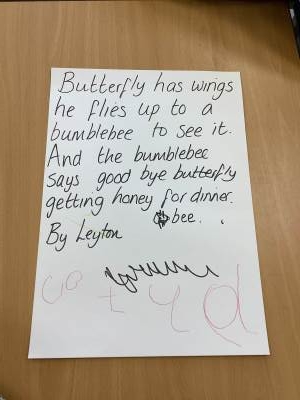 Butterfly has wings
he flies up to a
bumblebee to see it.
And the bumblebee
says good bye butterfly
getting honey for dinner.
bee.
By Leyton